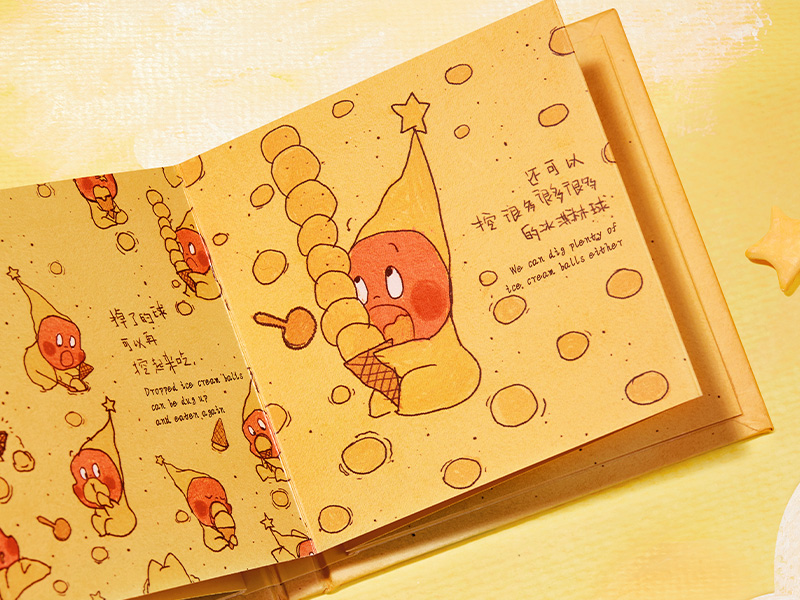 掉了的球
可以再
挖起来吃.
Dropped ice cream balls
can be dug up
and eaten again
还可以
挖很多很多很多
的冰淇淋球
We can dig plenty of
ice cream balls either